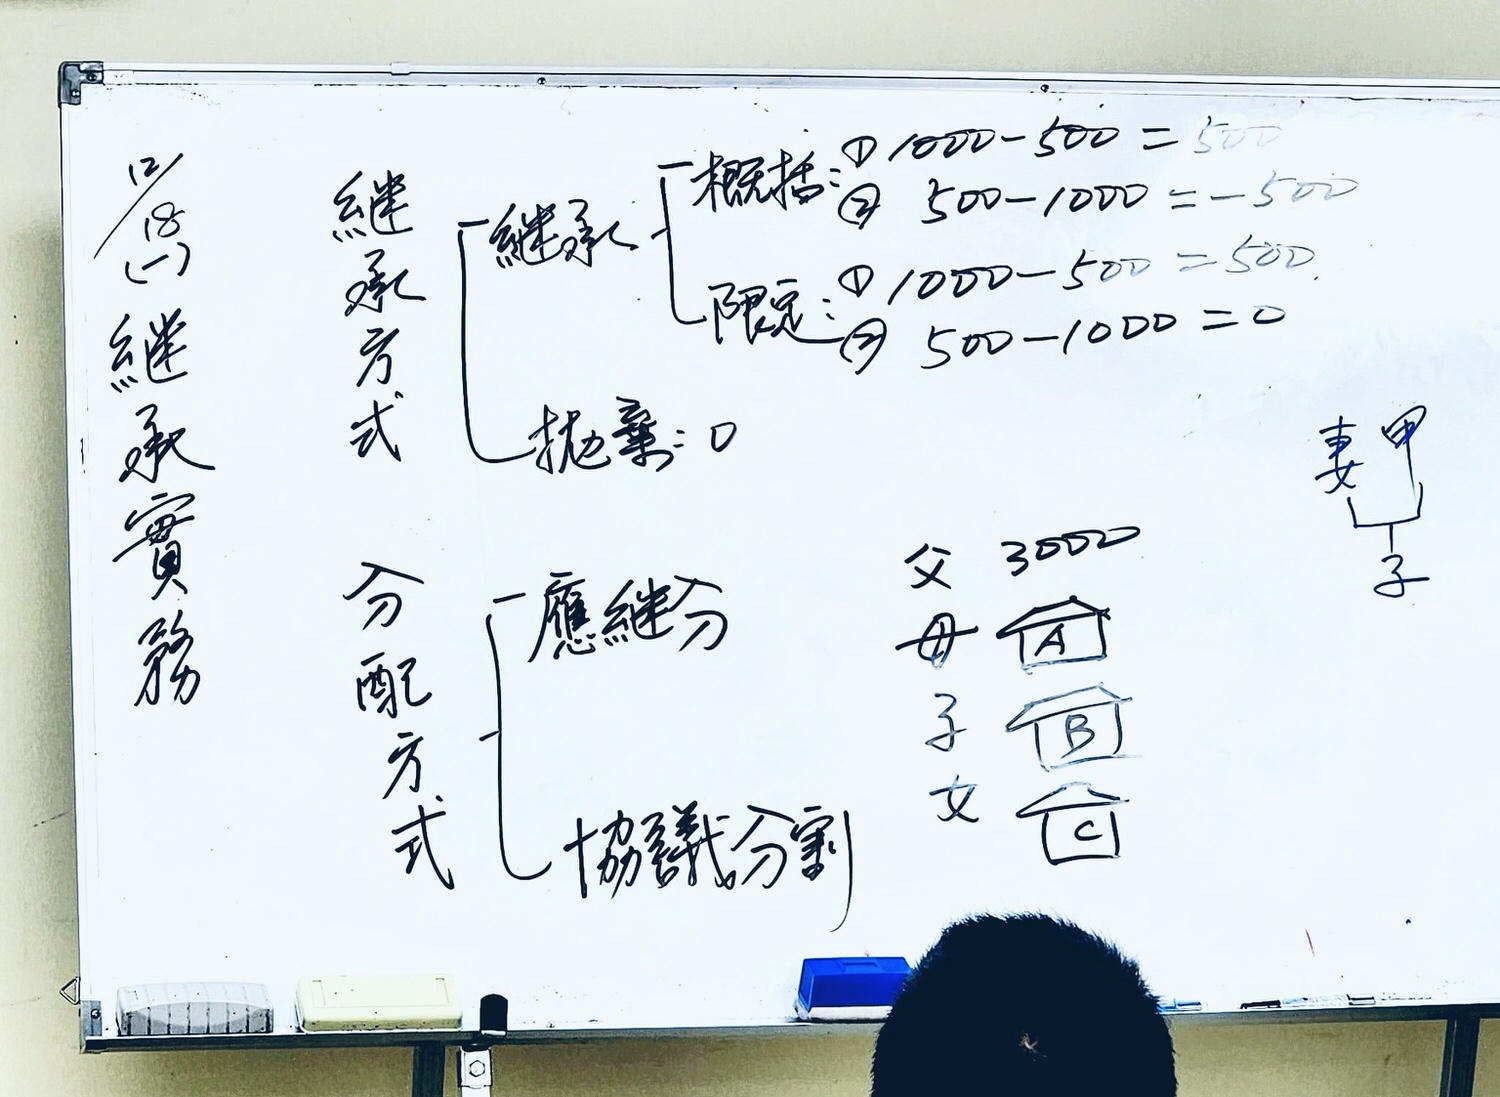 12/18(一)繼承實務
繼承方式
繼承
概括:① 1000-500=500
② 500-1000=-500
限定:① 1000-500=500
② 500-1000=0
拋棄:0
分配方式
應継分
協議分割
父 3000
母 A
子 B
女 C
妻 甲
子